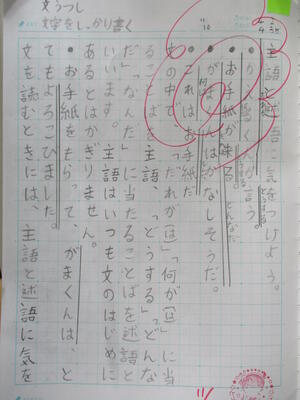 文うつし
文字をしっかり書く
主語と述語に気をつけよう。
・かえるくんが言う。
・お手紙が来る。
・がまくんはかなしそうだ。
・これはお手紙だ
文の中で、「だれが(は)」「何が(は)」に当
ることばを主語、「どうする」「どんな
だ」「なんだ」に当たることばを述語と
いいます。主語はいつも文のはじめに
あるとはかぎりません。
・お手紙をもらって、がまくんは、と
てもよろこびました。
文を読むときには、主語と述語に気を